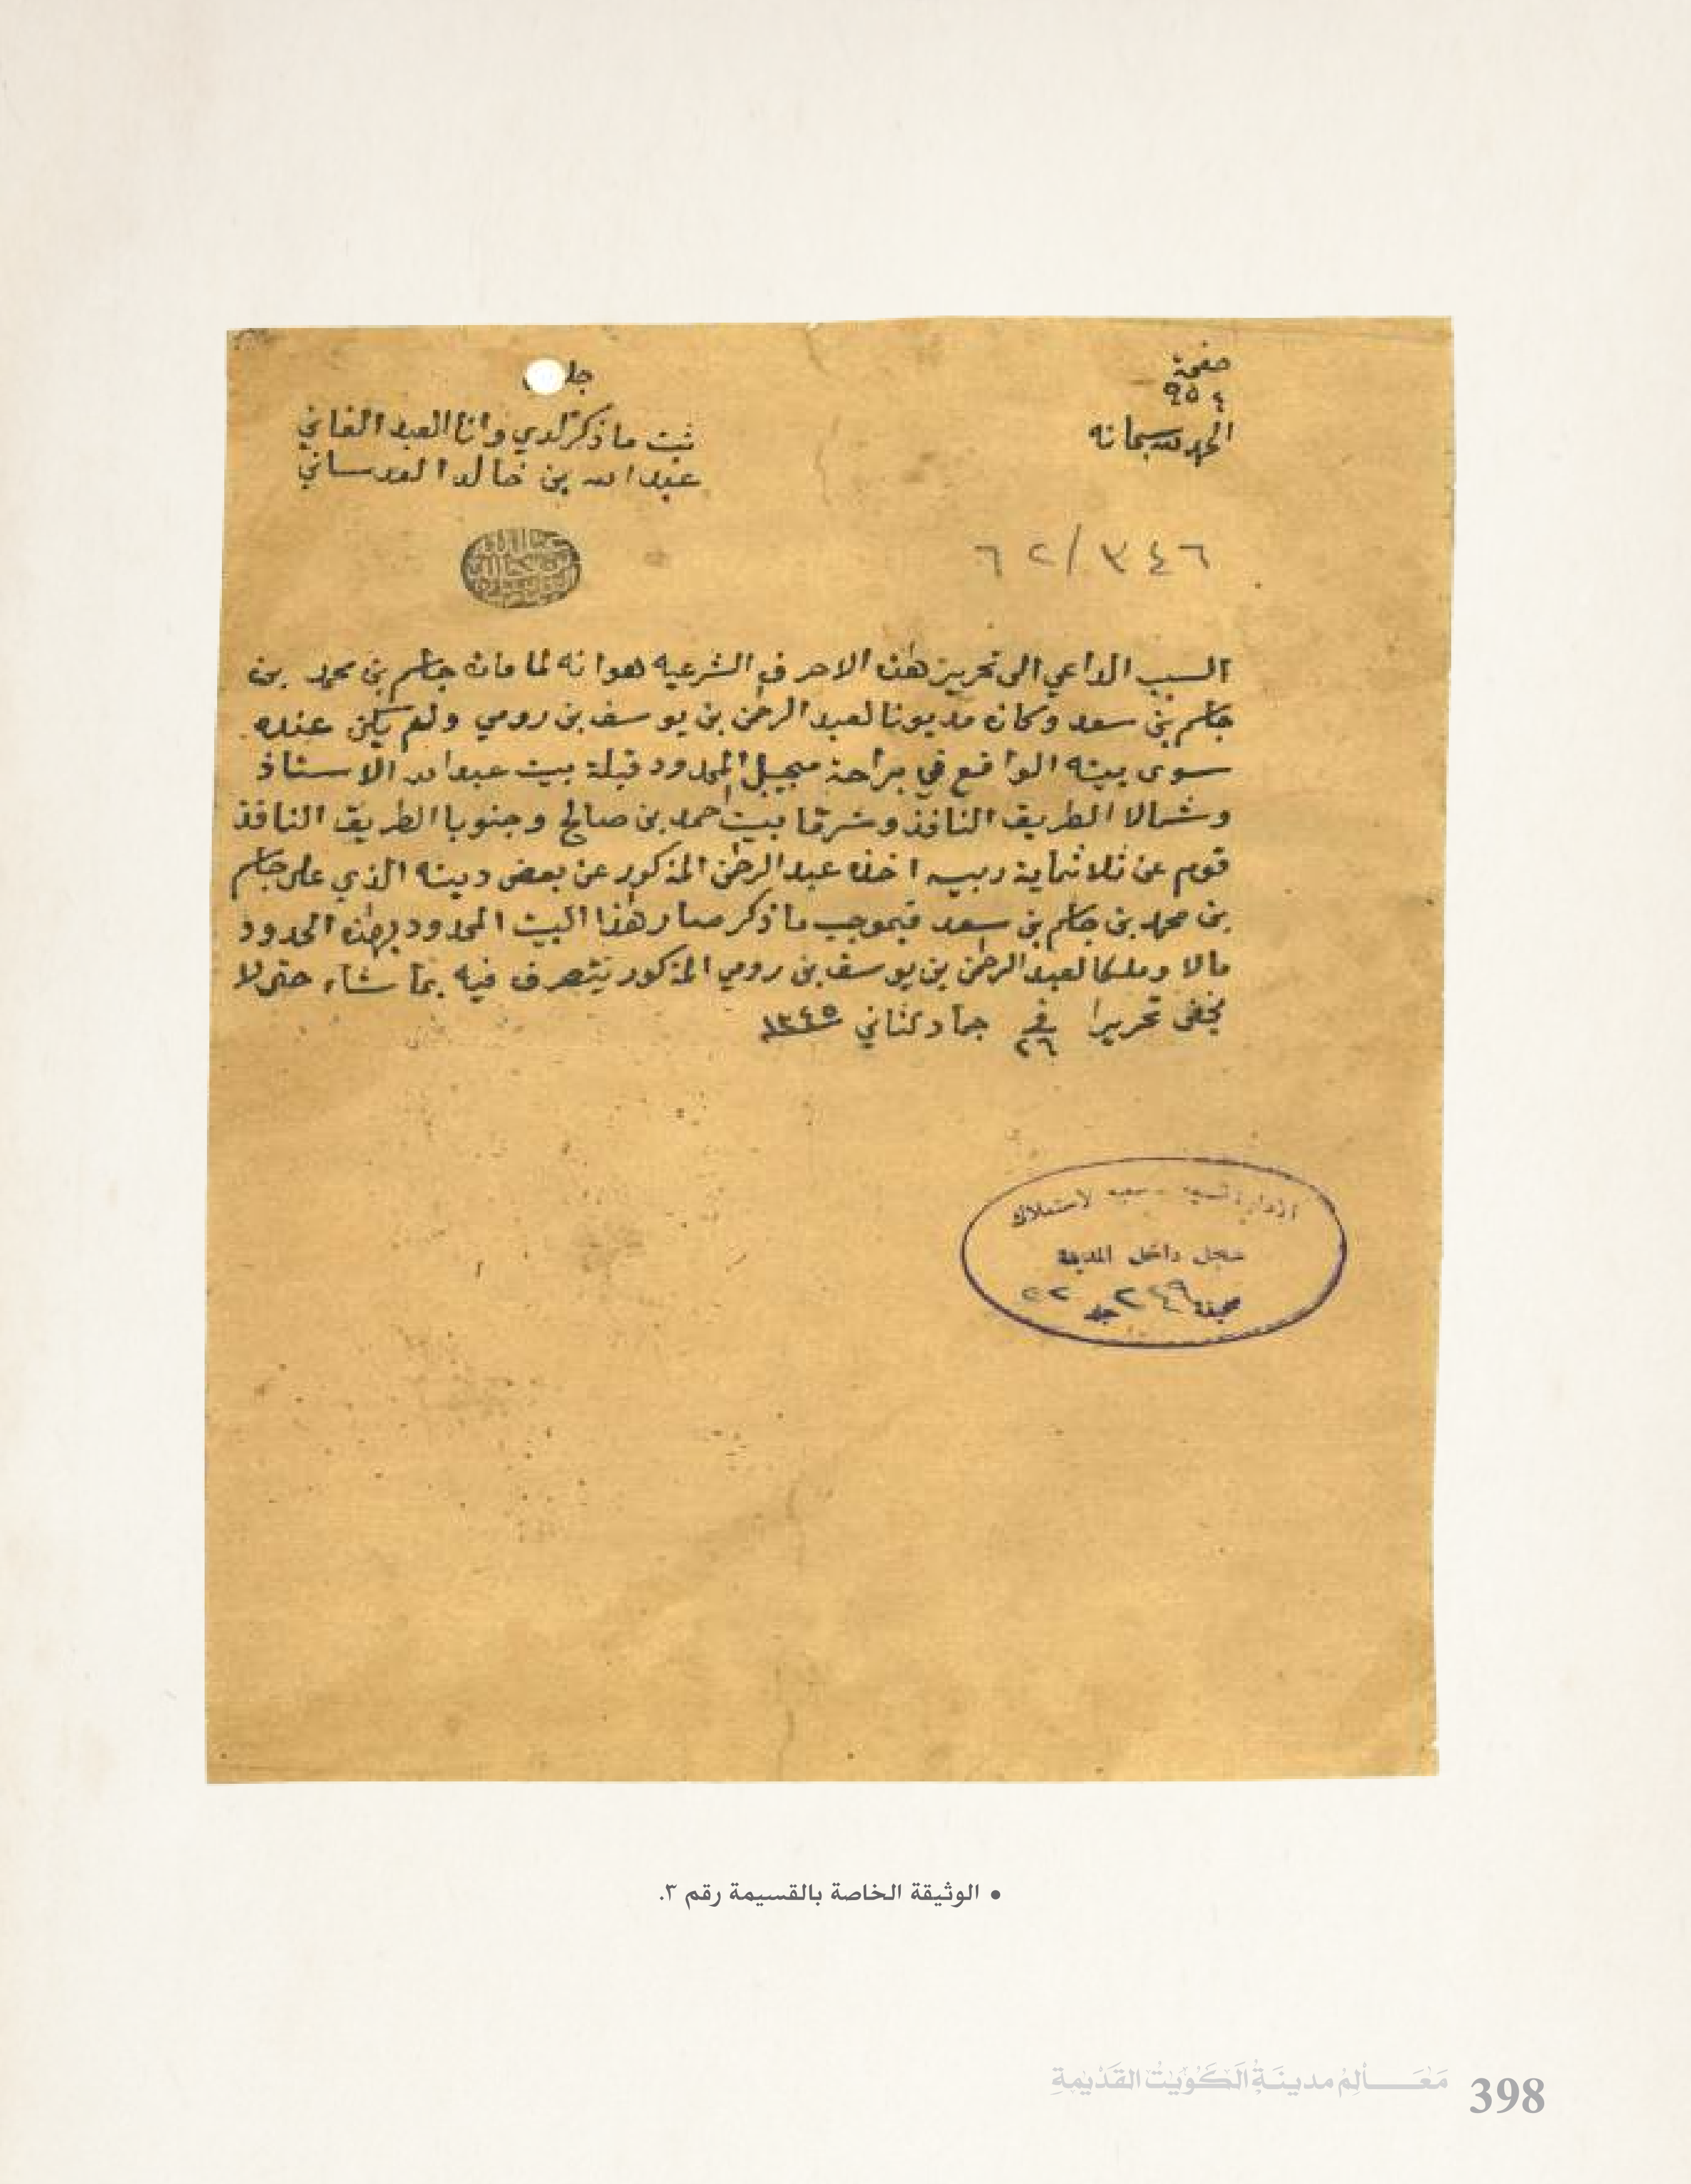 صفحة
٩٥٤
الحمد لله سبحانه
ثبت ما ذكر لدي وانا العبد الفاني
عبدالله بن خالد العدساني
٦٢/٣٤٦
السبب الداعي الى تحرير هذه الاحرف الشرعيه هو انه لما مات جاسم بن محمد بن
جاسم بن سعد وكان مديونا لعبد الرحمن بن يوسف بن رومي ولم يكن عنده
سوى بيته الواقع في براحة مجيبل المحدود قبلة بيت عبدالله الاستاذ
وشمالا الطريق النافذ وشرقا بيت احمد بن صالح وجنوبا الطريق النافذ
قوم عن ثلاثماية ربيه اخذه عبد الرحمن المذكور عن بعض دينه الذي على جاسم
بن محمد بن جاسم بن سعد فبموجب ما ذكر صار هذا البيت المحدود بهذه الحدود
مالا وملكا لعبد الرحمن بن يوسف بن رومي المذكور يتصرف فيه بما شاء حتى لا
يخفى تحريرا في ٢٦ جماد ثاني ١٣٤٥
لاستملاك
سجل داخل المدينة
صحيفة ٢٤٩ جلد ٢٢
• الوثيقة الخاصة بالقسيمة رقم ٣.
مَعَالِمُ مدينَةِ الكُوَيْتِ القَدْيْمَةِ
398